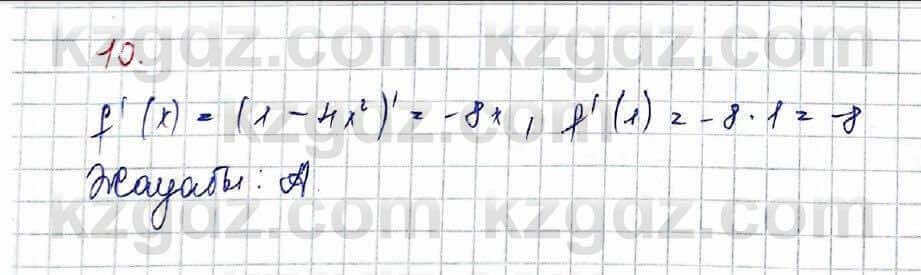 10.
f'(x) = (1 - 4x²)' = -8x, f'(1) = -8·1 = -8
Жауабы: А.
kzgdz.com kzgdz.com
kzgdz.com kzgdz.com